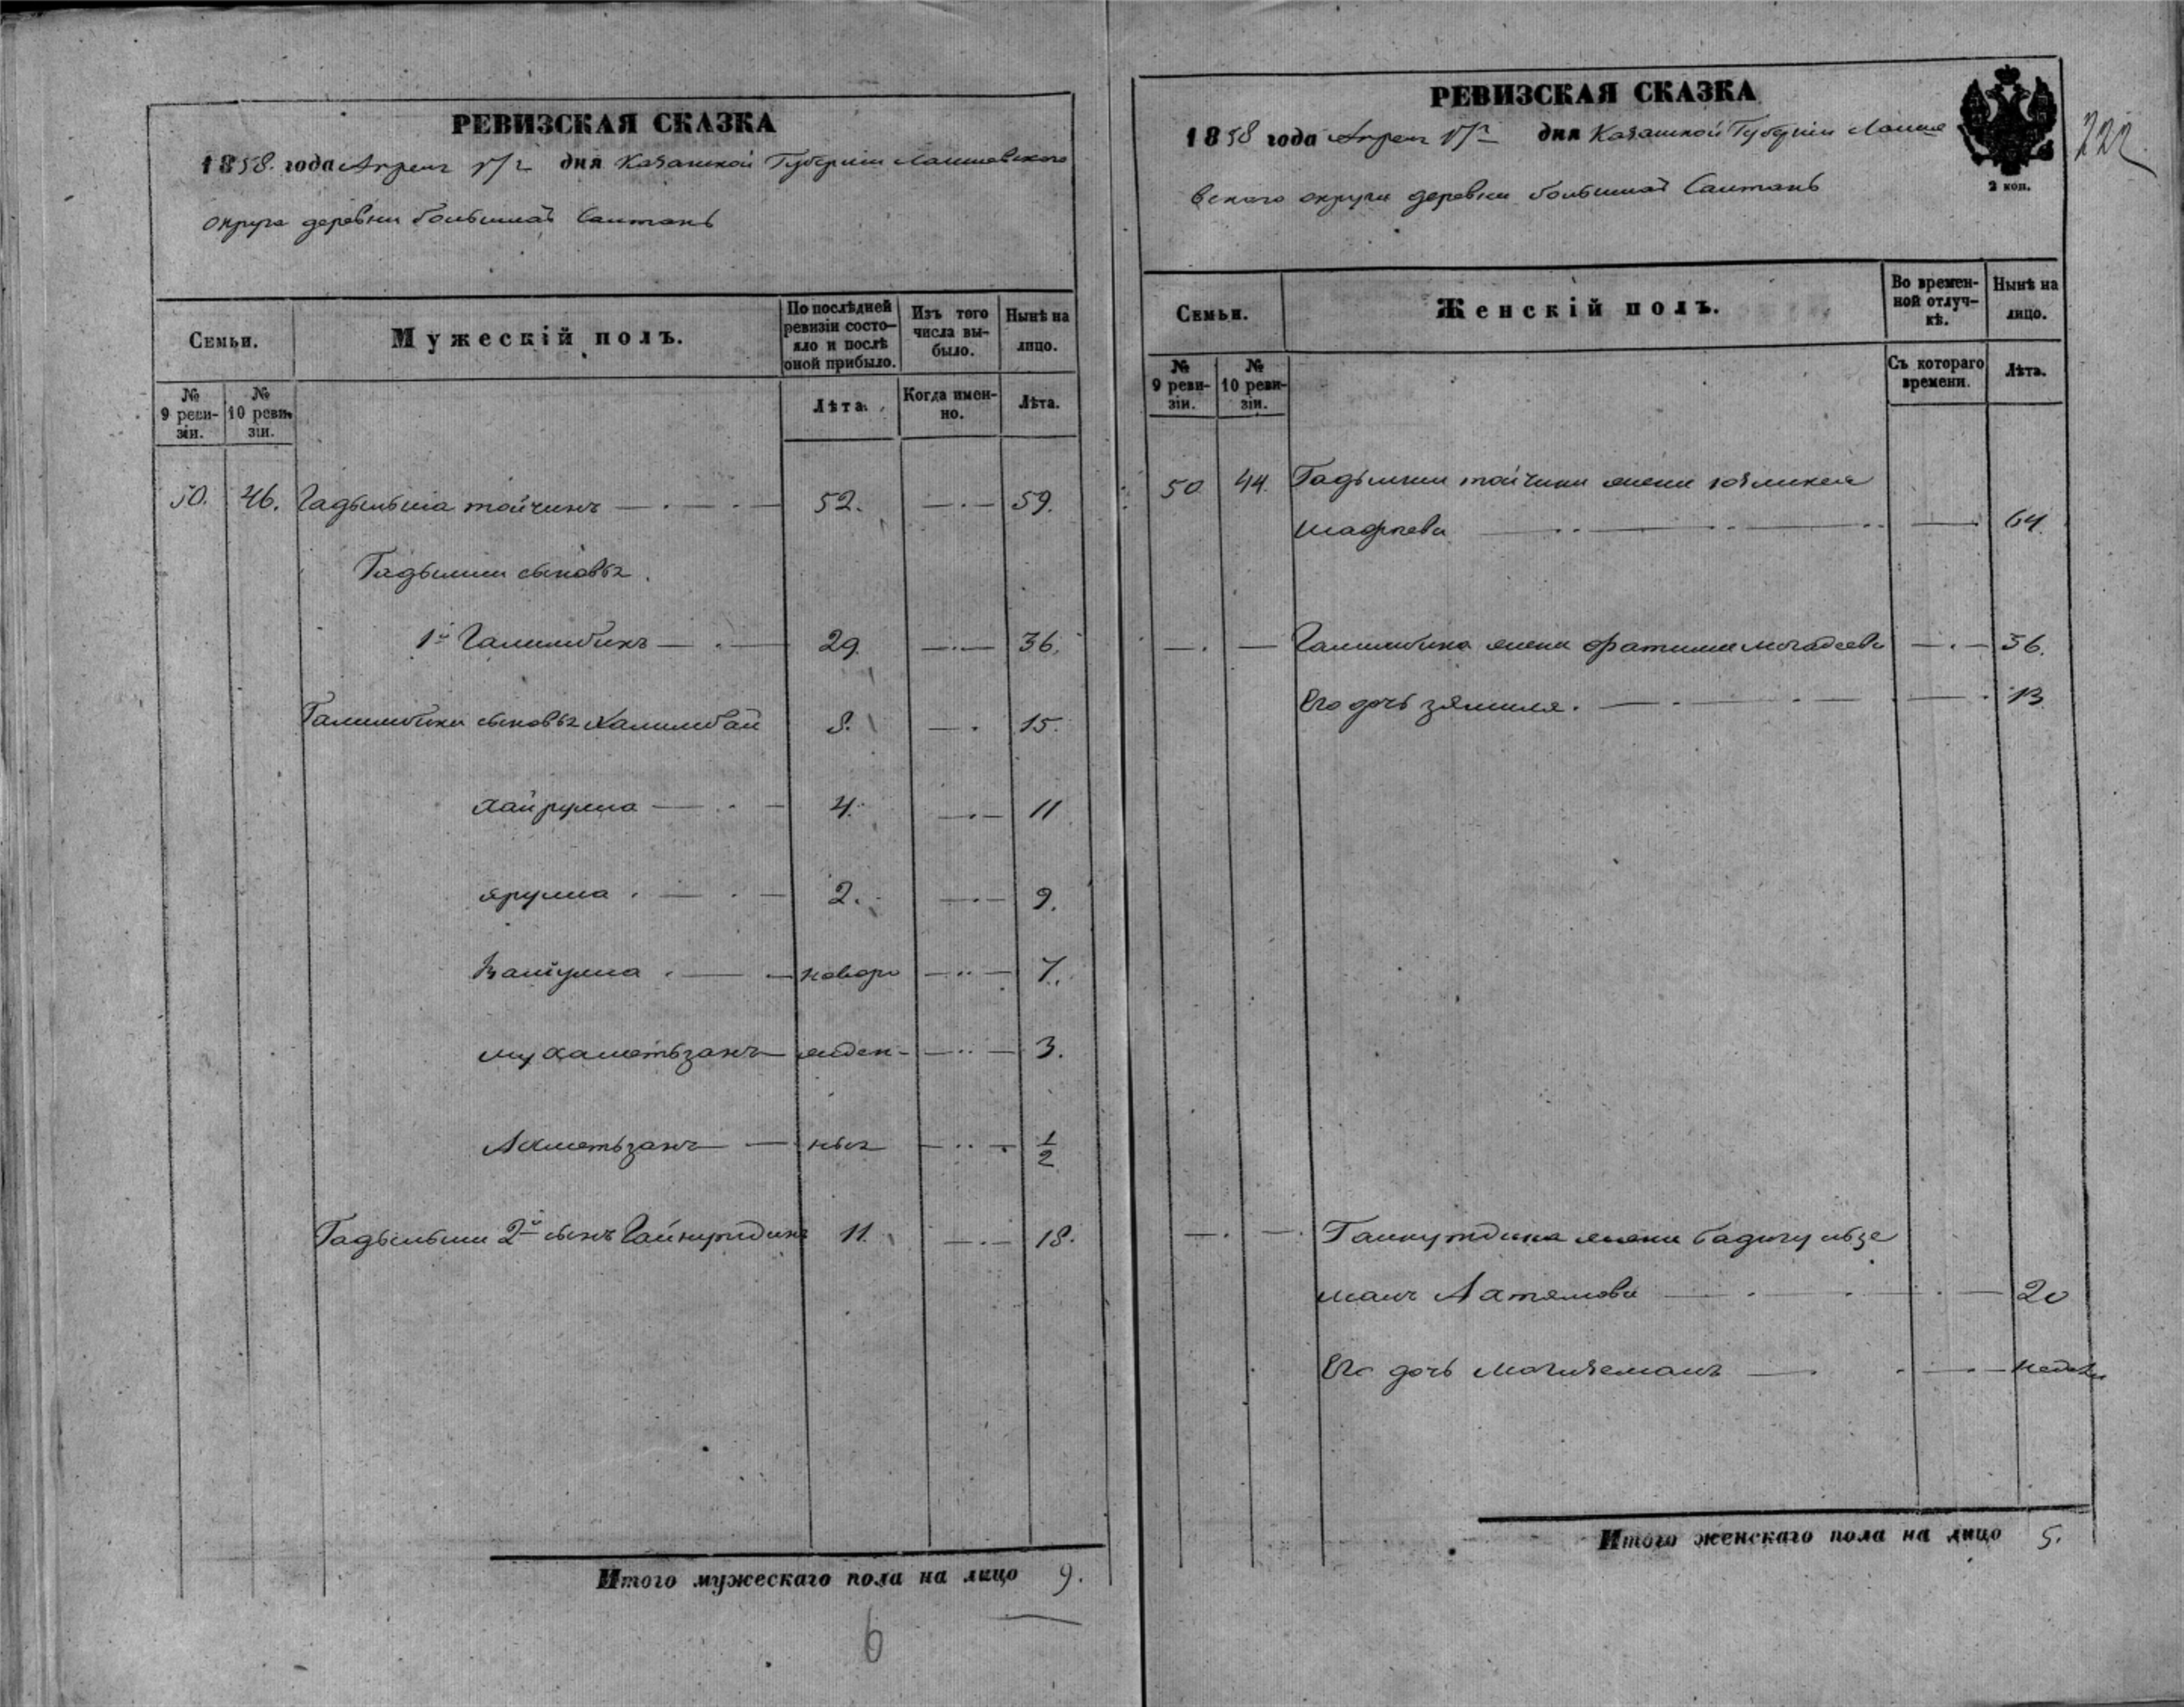 РЕВИЗСКАЯ СКАЗКА
1858. года Апреля дня Казанской Губернии Лаишевского
округа деревни большихъ Салтанъ
Семьи.
Мужескій полъ.
По послѣдней ревизіи состояло и послѣ оной прибыло.
Изъ того числа выбыло.
Нынѣ на лицо.
№ 9 ревизіи.
№ 10 ревизіи.
Лѣта.
Когда именно.
Лѣта.
50. 46. Гадыльша тойчинъ 52. 59.
Гадылши сыновья
1й Галимбикъ 29. 36.
Галимбики сыновья Халимбай 8. 15.
Хайрулла 4. 11
ярулла 2. 9.
Валиулла новоро 7.
мухаметьзянъ жден- 3.
Ахметьзянъ ныя 1/2
Гадыльши 2й сынъ Гайнутдинъ 11. 18.
Итого мужескаго пола на лицо 9.
6
РЕВИЗСКАЯ СКАЗКА
1858 года Апреля дня Казанской Губерніи Лаише
вского округи деревни большихъ Салтанъ
2 коп.
222
Семьи.
Женскій полъ.
Во временной отлучкѣ.
Нынѣ на лицо.
№ 9 ревизіи.
№ 10 ревизіи.
Съ котораго времени.
Лѣта.
50 44. Гадылши тойчина жена
64.
Галимбика жена фатима 36.
Его дочь зямиля. 13
Гайнутдина жена бадигульзе
манъ 20
Его дочь Могиземанъ недели
Итого женскаго пола на лицо 5.